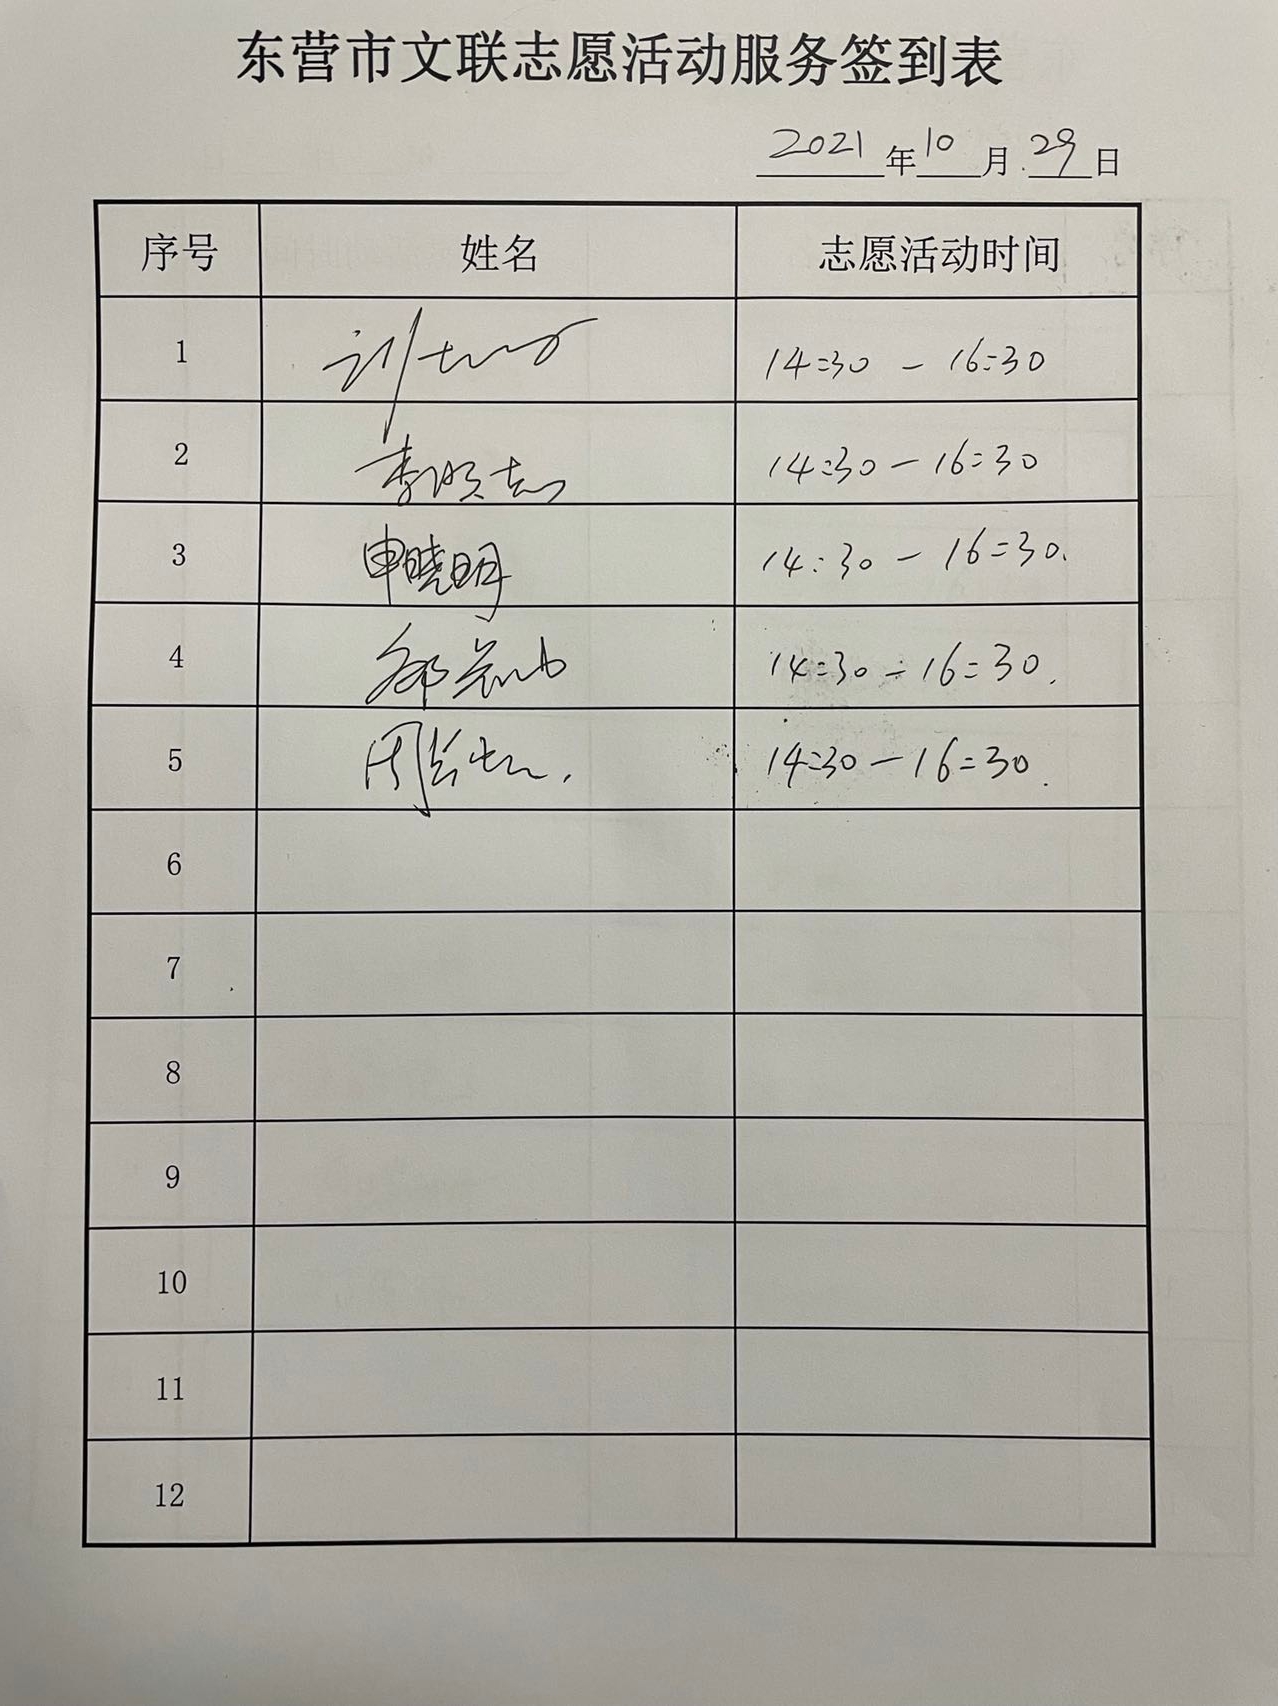 东营市文联志愿活动服务签到表
2021年10月29日
序号 姓名 志愿活动时间
1 14:30 — 16:30
2 李 志 14:30 — 16:30
3 申晓明 14:30 — 16:30.
4 14:30 — 16:30.
5 周 14:30 — 16:30.
6
7
8
9
10
11
12